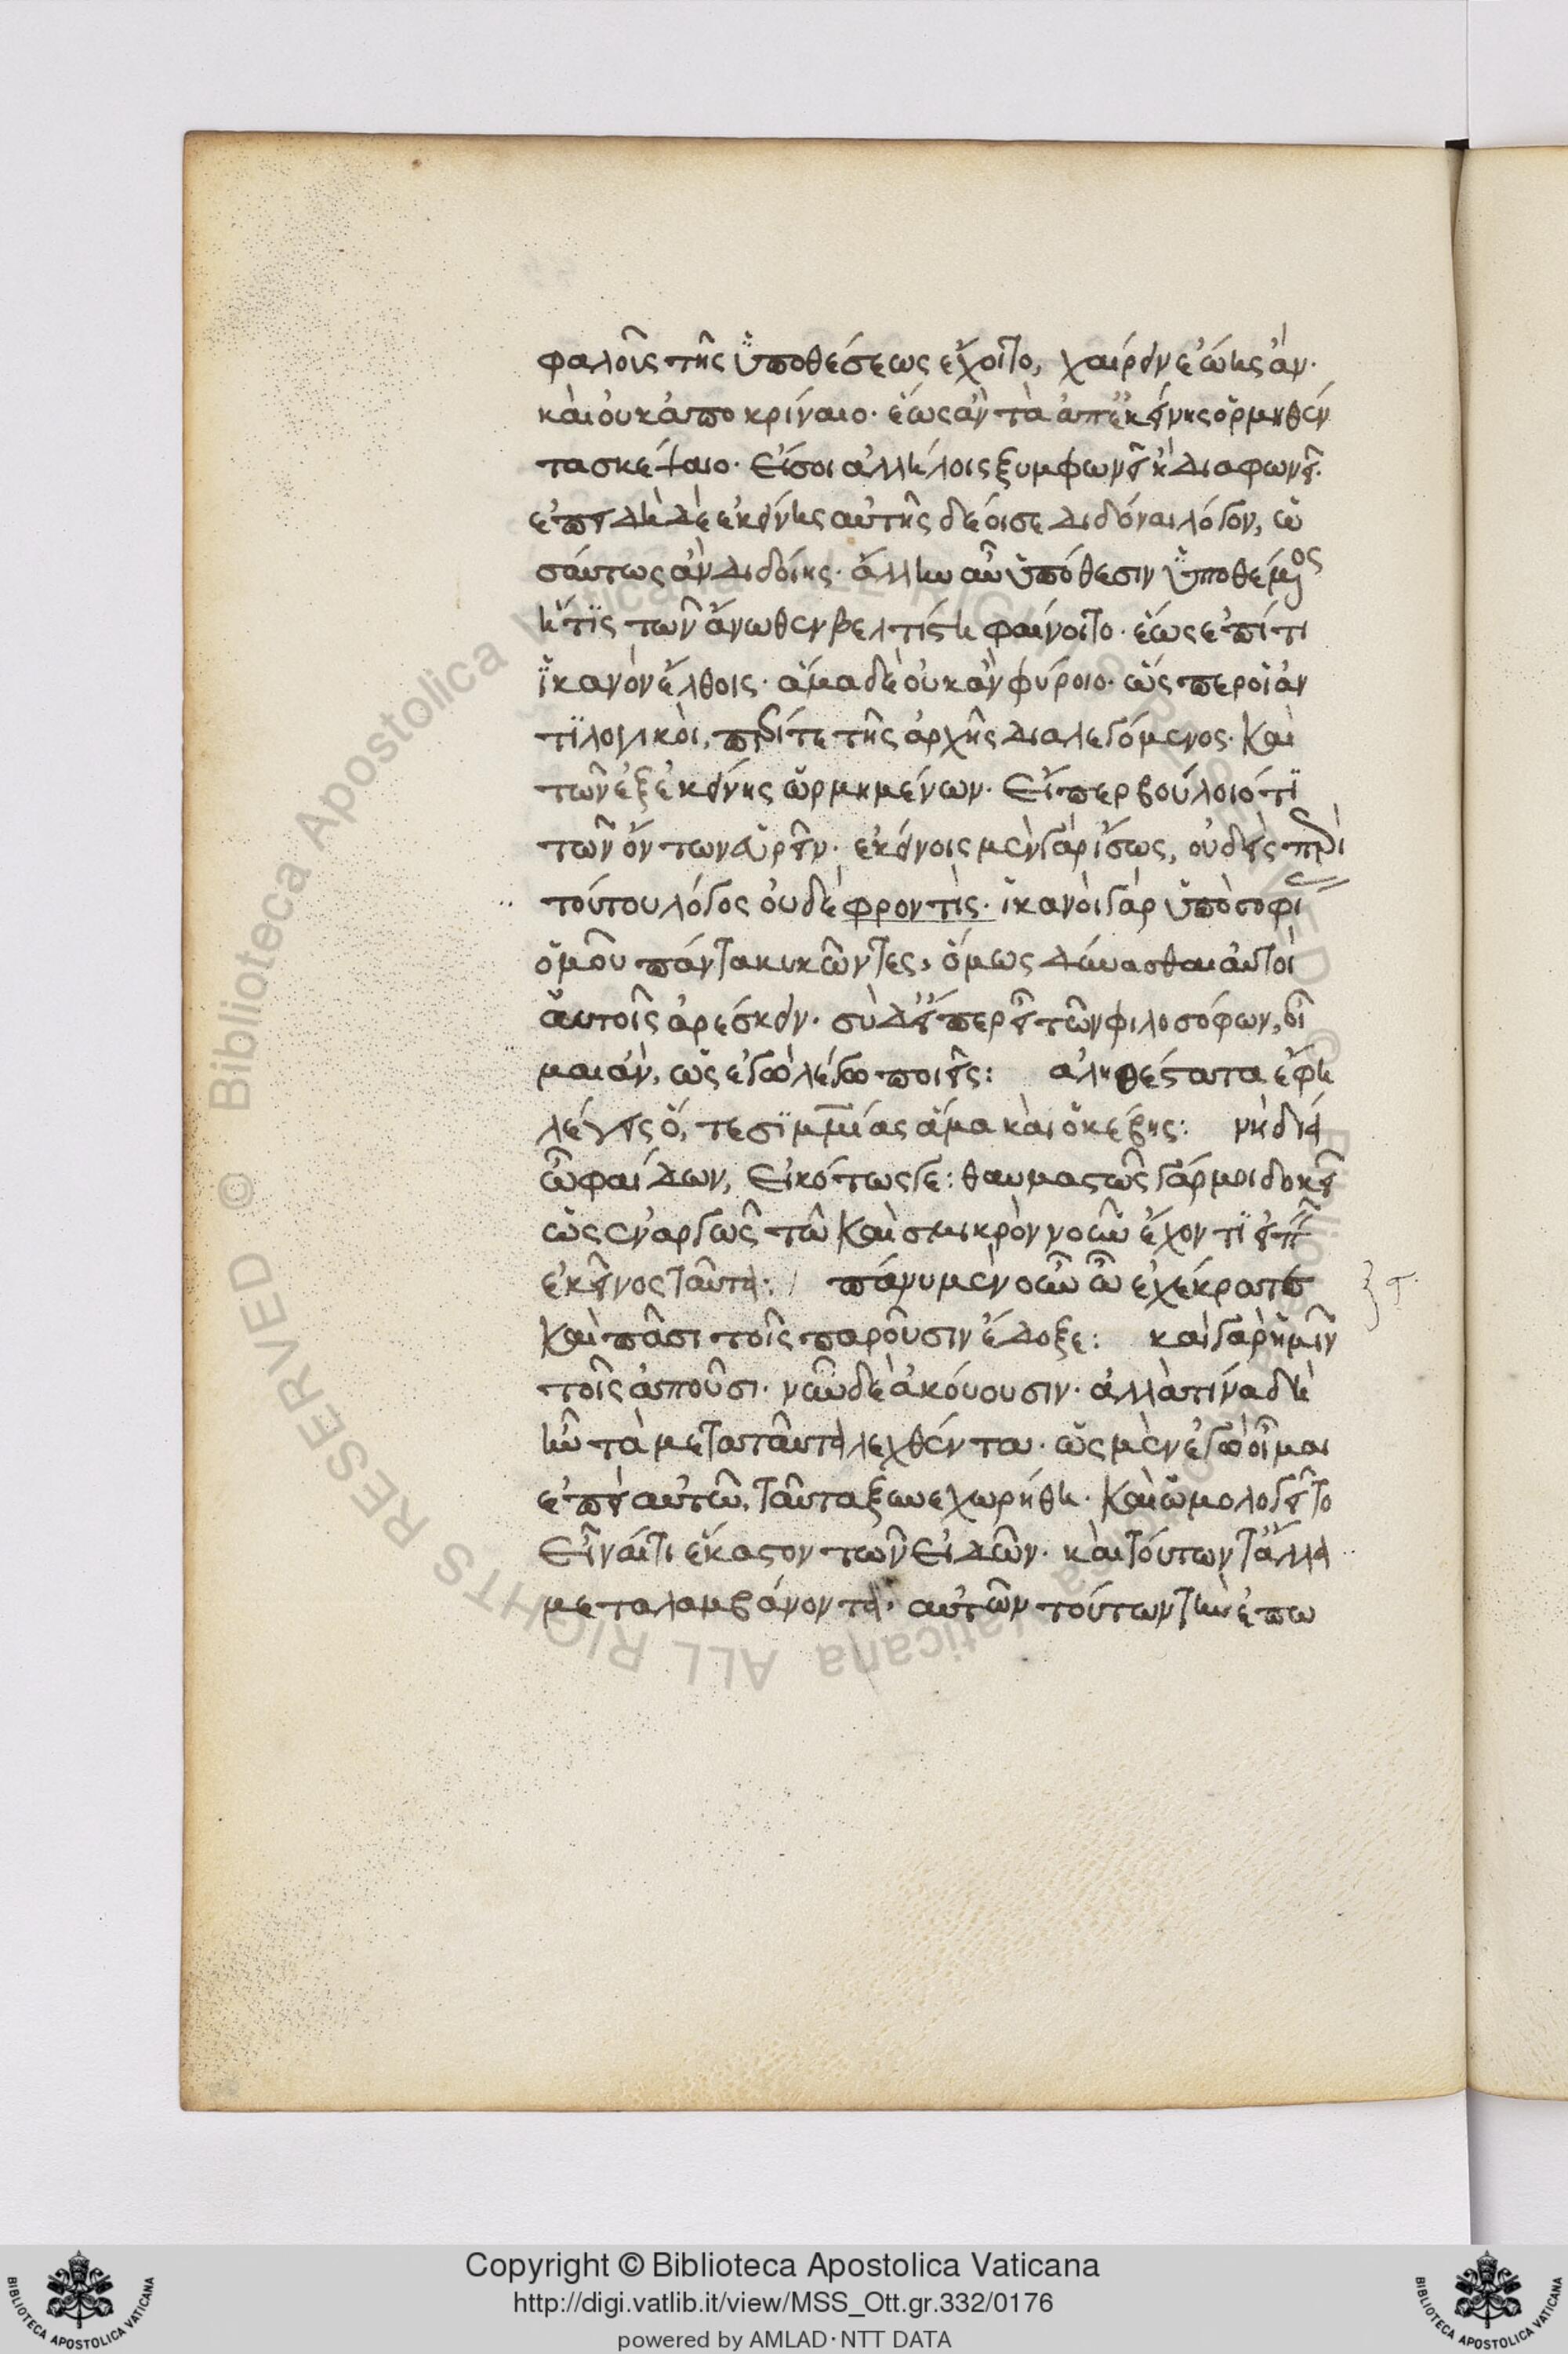 φαλοῦς τῆς ὑποθέσεως ἔχοιτο, χαίρειν ἐώης ἄν·
καὶ οὐκ ἀποκρίναιο· ἕως ἂν τὰ ἀπ' ἐκείνης ὁρμηθέν
τα σκέψαιο· εἴ σοι ἀλλήλοις ξυμφωνεῖ κ διαφωνεῖ·
ἐπειδὴ δὲ ἐκείνης αὐτῆς δέοι σε διδόναι λόγον, ὡ
σαύτως ἂν διδοίης· ἄλλην αὖ ὑπόθεσιν ὑποθέμενος
ἥτις τῶν ἄνωθεν βελτίστη φαίνοιτο· ἕως ἐπί τι
ἱκανὸν ἔλθοις· ἅμα δὲ οὐκ ἂν φύροιο· ὥσπερ οἱ ἀν
τιλογικοὶ, περί τε τῆς ἀρχῆς διαλεγόμενος· καὶ
τῶν ἐξ ἐκείνης ὡρμημένων· εἴπερ βούλοιό τι
τῶν ὄντων εὑρεῖν· ἐκείνοις μὲν γὰρ ἴσως, οὐδεὶς περὶ
τούτου λόγος οὐδὲ φροντίς· ἱκανοὶ γὰρ ὑπὸ σοφί
ὁμοῦ πάντα κυκῶντες, ὅμως δύνασθαι αὐτοὶ
αὑτοῖς ἀρέσκειν· σὺ δ' εἴπερ εἶ τῶν φιλοσόφων, οἶ
μαι ἂν, ὡς ἐγὼ λέγω ποιεῖς: ἀληθέστατα ἔφη
λέγεις ὅ, τε σιμμίας ἅμα καὶ ὁ κέβης: νὴ δία
ὦ φαίδων, εἰκότως γε: θαυμαστῶς γάρ μοι δοκεῖ
ὡς ἐναργῶς τῶ καὶ σμικρὸν νοῦν ἔχοντι εἰπεῖν
ἐκεῖνος ταῦτα: πάνυ μὲν οὖν ὦ ἐχέκρατες
καὶ πᾶσι τοῖς παροῦσιν ἔδοξε: καὶ γὰρ ἡμῖν
τοῖς ἀποῦσι· νῦν δὲ ἀκούουσιν· ἀλλὰ τίνα δὴ
ἦν τὰ μετὰ ταῦτα λεχθέντα· ὡς μὲν ἐγὼ οἶμαι
ἐπεὶ αὐτῶ, ταῦτα ξυνεχωρήθη· καὶ ὡμολογεῖτο
εἶναί τι ἕκαστον τῶν εἰδῶν· καὶ τούτων τἆλλα
μεταλαμβάνοντα, αὐτῶν τούτων τὴν ἐπω
Copyright © Biblioteca Apostolica Vaticana
http://digi.vatlib.it/view/MSS_Ott.gr.332/0176
powered by AMLAD·NTT DATA